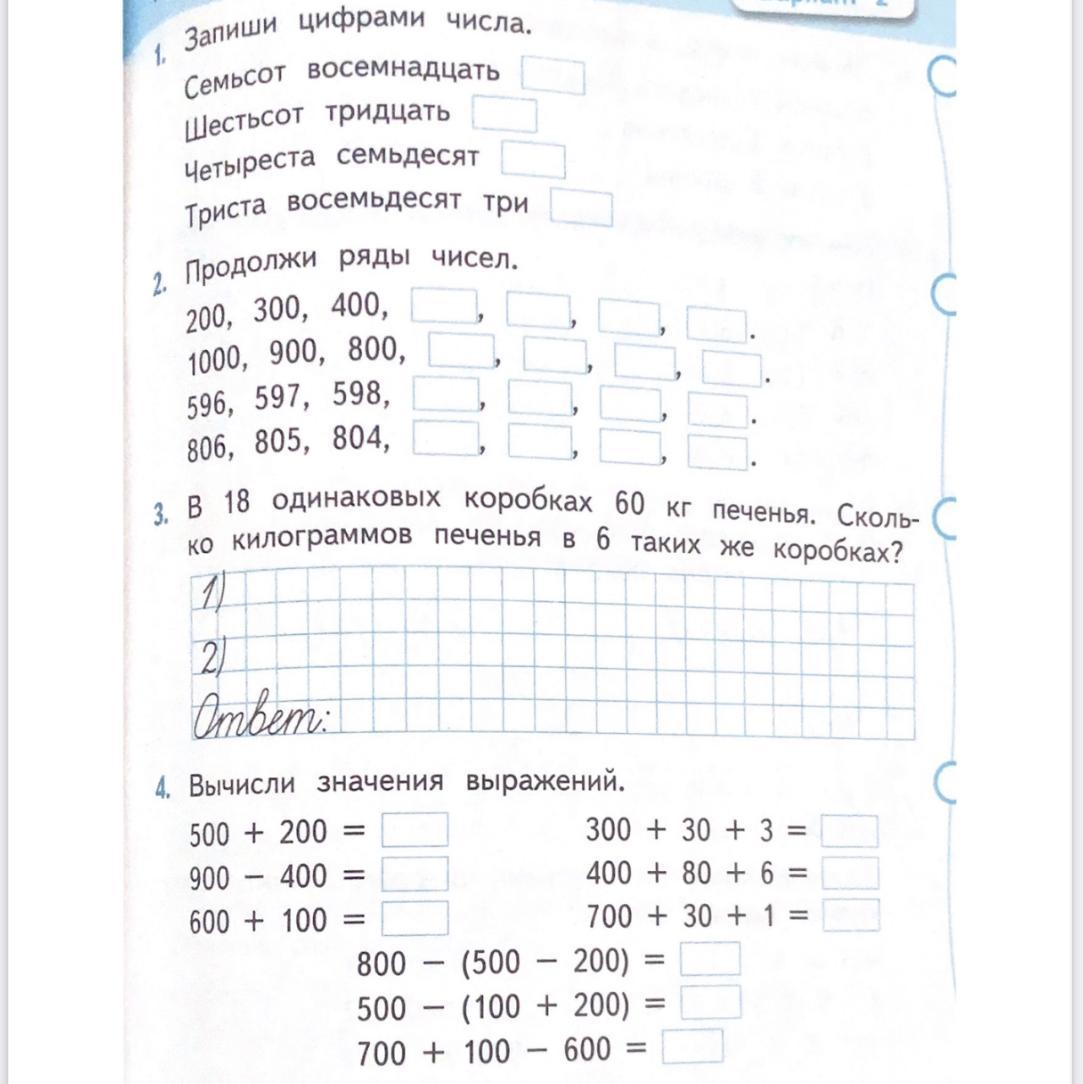 1. Запиши цифрами числа.
Семьсот восемнадцать
Шестьсот тридцать
Четыреста семьдесят
Триста восемьдесят три
2. Продолжи ряды чисел.
200, 300, 400, , , , .
1000, 900, 800, , , , .
596, 597, 598, , , , .
806, 805, 804, , , , .
3. В 18 одинаковых коробках 60 кг печенья. Сколь-
ко килограммов печенья в 6 таких же коробках?
1)
2)
Ответ:
4. Вычисли значения выражений.
500 + 200 = 300 + 30 + 3 =
900 − 400 = 400 + 80 + 6 =
600 + 100 = 700 + 30 + 1 =
800 − (500 − 200) =
500 − (100 + 200) =
700 + 100 − 600 =